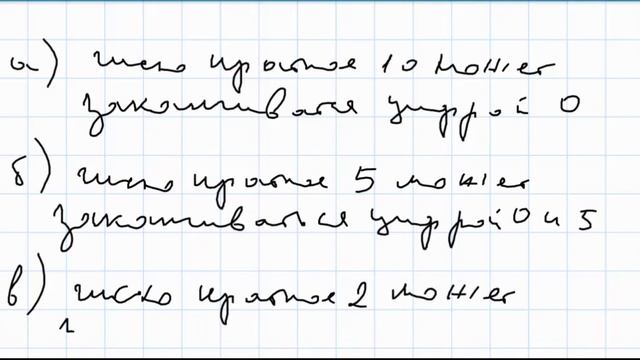 а) число кратное 10 может
заканчиваться цифрой 0
б) число кратное 5 может
заканчиваться цифрой 0 и 5
в) число кратное 2 может